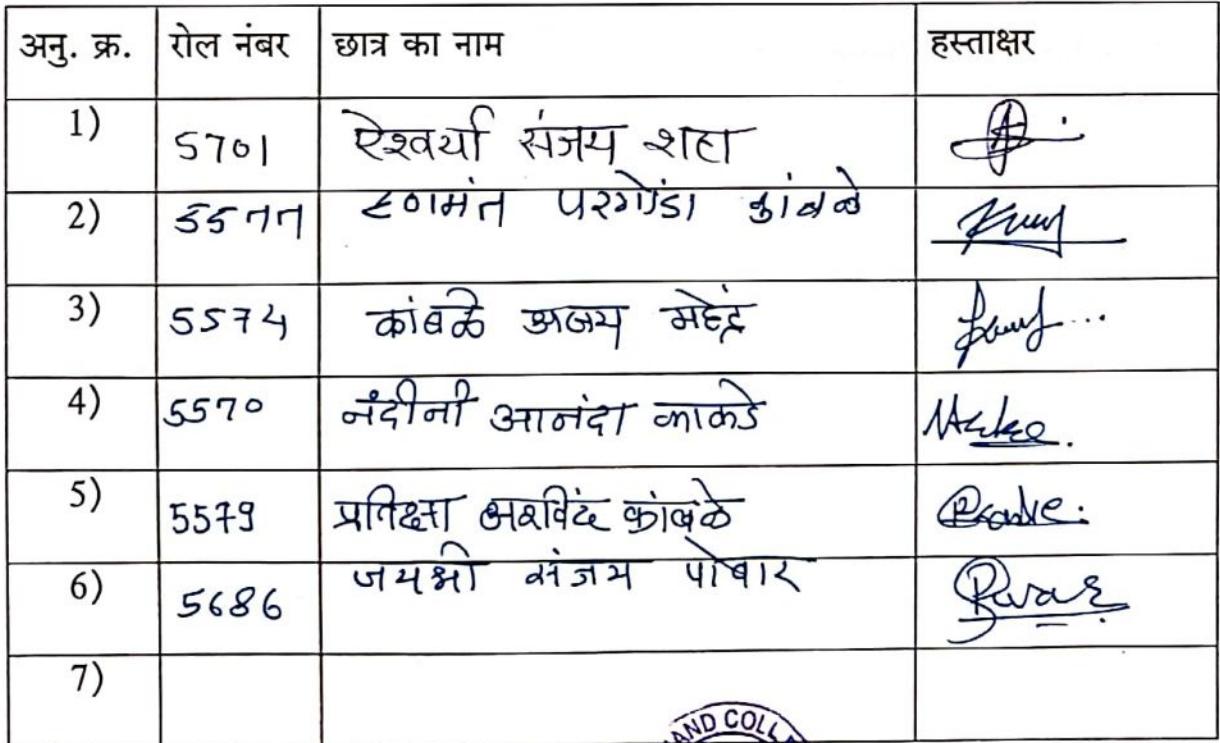 अनु. क्र. रोल नंबर छात्र का नाम हस्ताक्षर
1) 5701 ऐश्वर्या संजय शहा
2) 5577 हणमंत परगोंडा कांबळे
3) 5574 कांबळे अजय महेंद्र
4) 5570 नंदीनी आनंदा काकडे
5) 5579 प्रतिक्षा अरविंद कांबळे
6) 5686 जयश्री संजय पोवार
7)
AND COLL